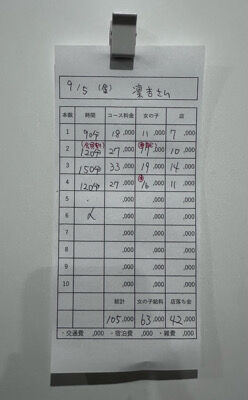 9/5 (金) 凛杏さん
本数 時間 コース料金 女の子 店
1 90分 18,000 11,000 7,000
2 120分 27,000 17,000 10,000
3 150分 33,000 19,000 14,000
4 120分 27,000 16,000 11,000
5 ,000 ,000 ,000
6 ,000 ,000 ,000
7 ,000 ,000 ,000
8 ,000 ,000 ,000
9 ,000 ,000 ,000
10 ,000 ,000 ,000
総計 女の子給料 店落ち金
105,000 63,000 42,000
・交通費 ,000 ・宿泊費 ,000 ・雑費 ,000